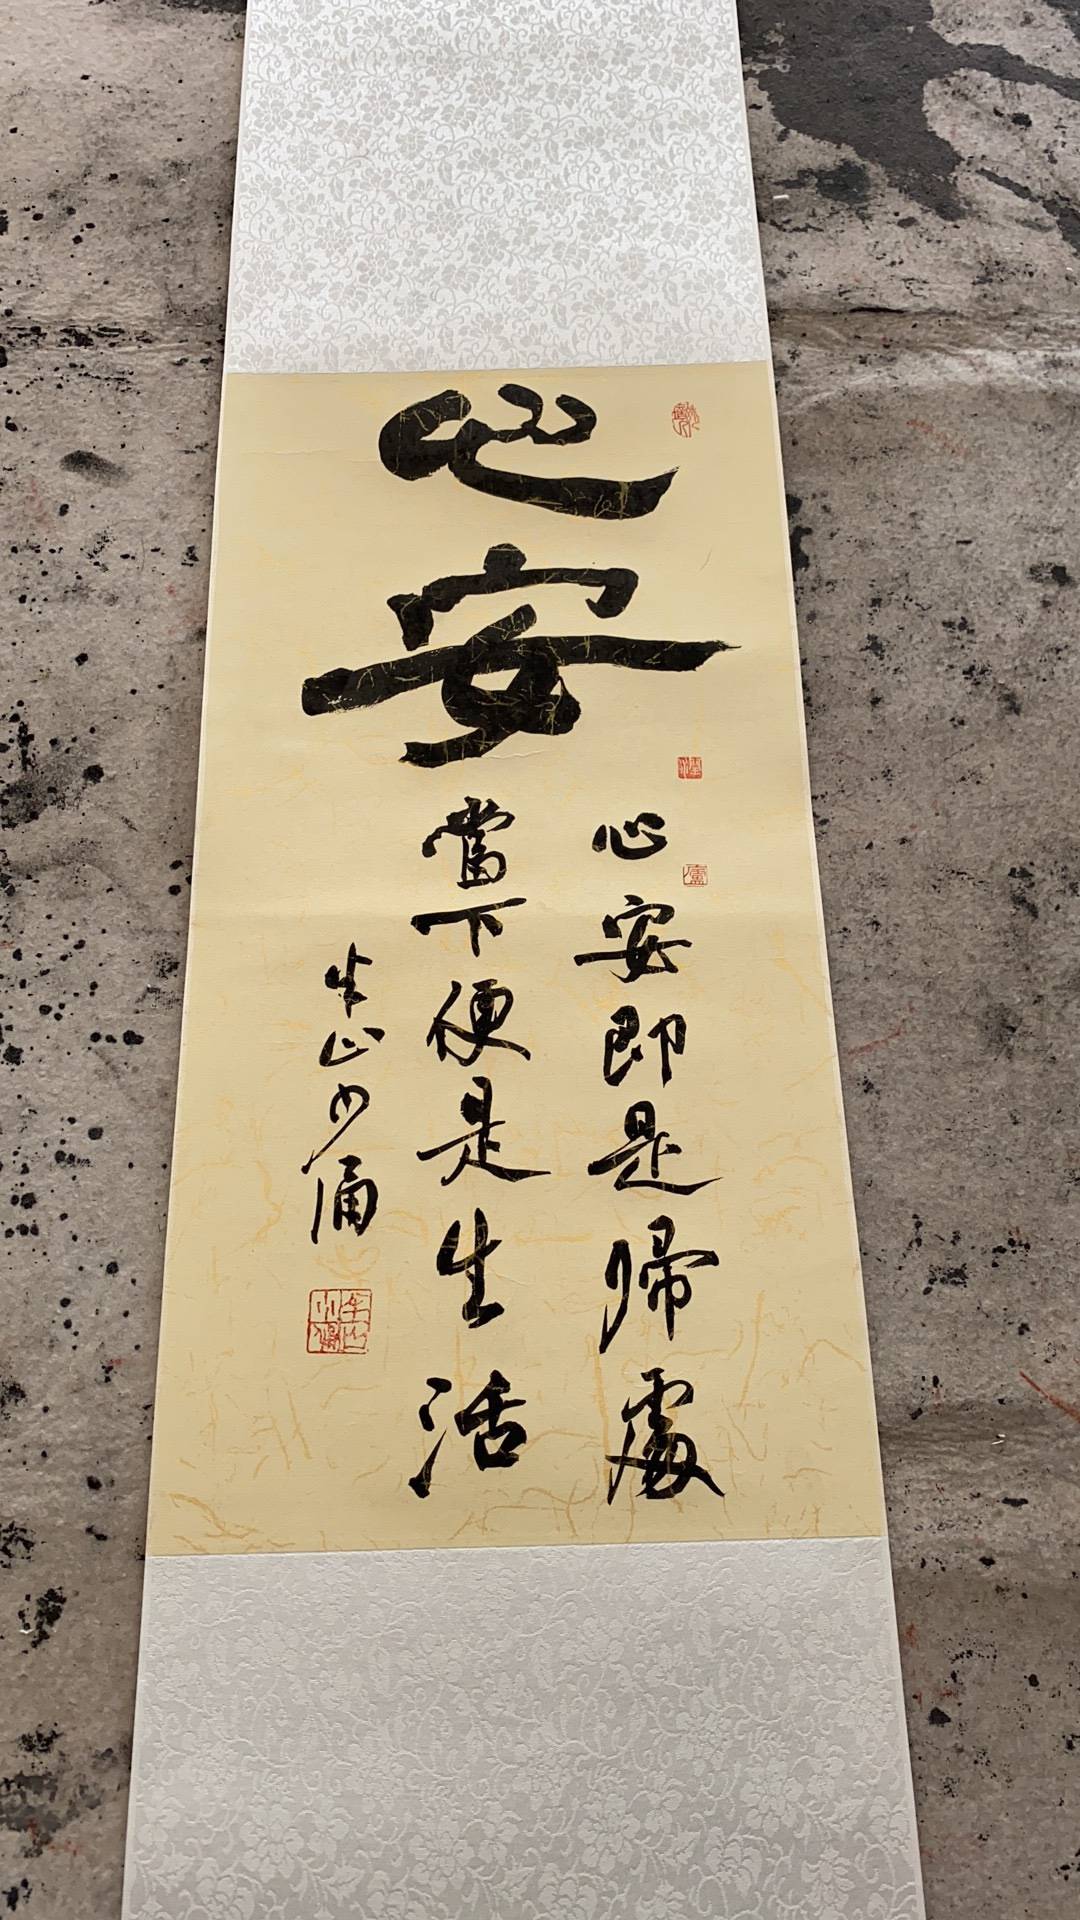 心安
心安即是歸處
當下便是生活
半山少傭